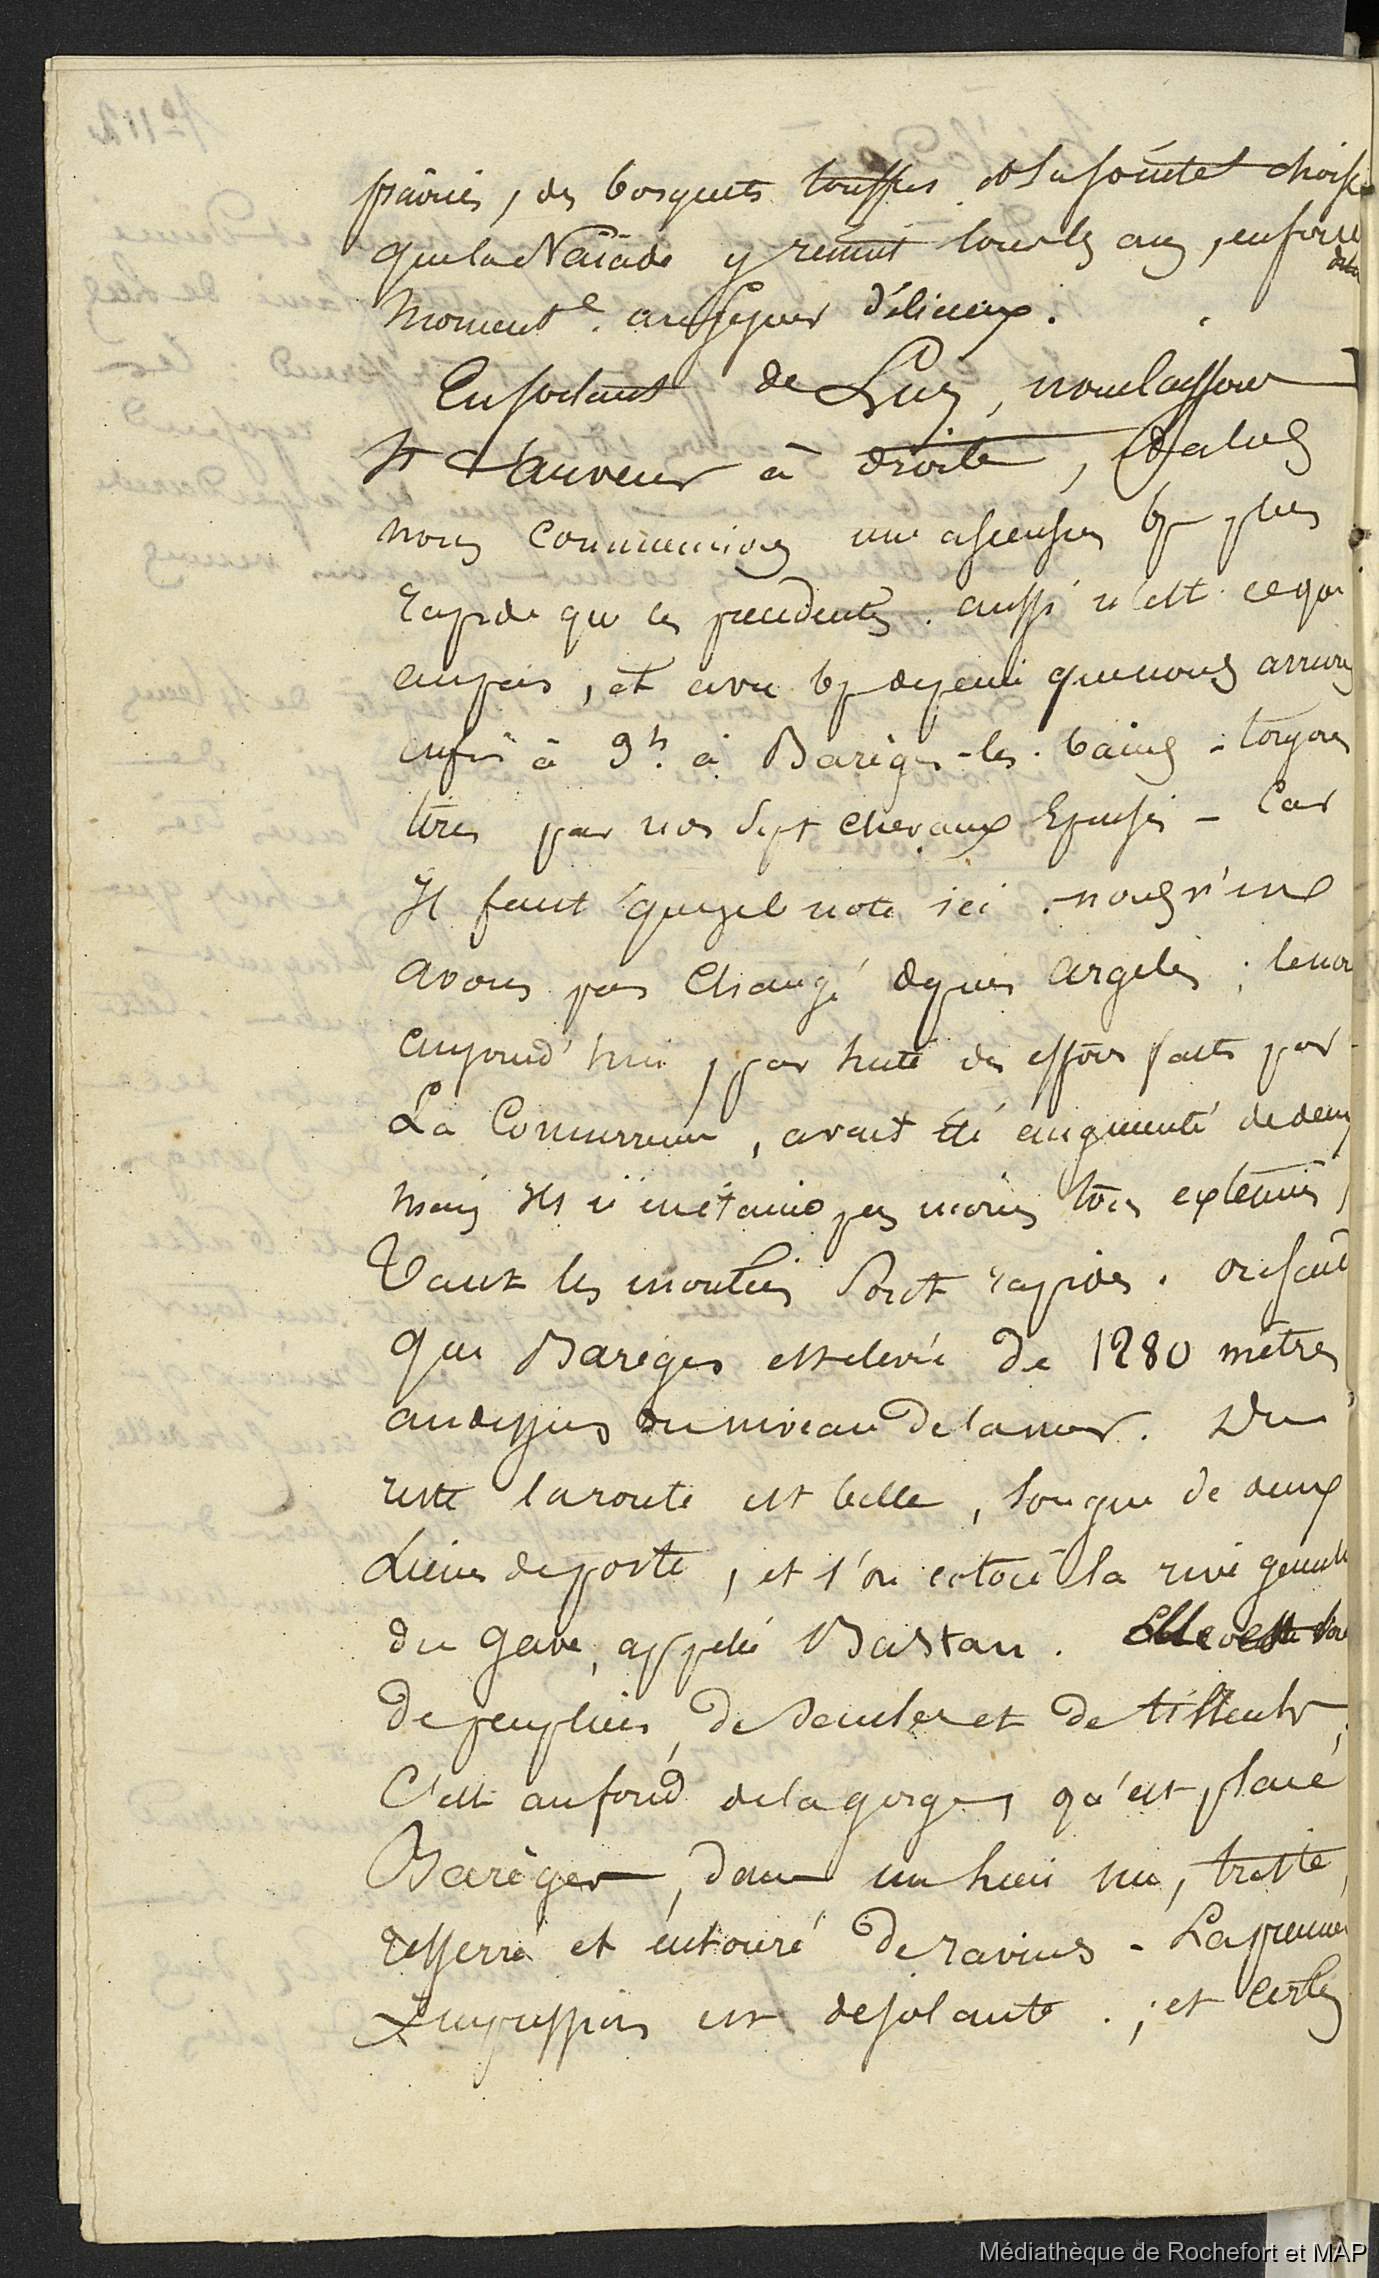 prairies, des bosquets touffus et la société choisie
que la Naïade y réunit tous les ans, en font
dans la
moment un séjour délicieux.
En sortant de Luz, nous laissons
St Sauveur à droite, et alors
nous commencions une ascension bp plus
rapide que les precedentes. aussi n'est ce qu'
au pas, et avec bp de peine que nous arrivons
enfin à 9h. à Barèges-les-bains - toujours
tirés par nos sept chevaux épuisés - Car
Il faut que je le note ici. nous n'en
avons pas changé depuis Argelès ; le nombre
aujourd'hui, par suite des efforts faits par
La Concurrence, avait été augmenté de deux
mais ils n'en étaient pas moins très exténués,
Tant les montées sont rapides. on sait
que Barèges est elevée de 1280 mètres
au dessus du niveau de la mer. Du
reste la route est belle, longue de deux
Lieues de poste, et l'on cotoie la rive gauche
du Gave, appelé Bastan.
De peupliers, de saules et de tilleuls,
C'est au fond de la gorge, qu'est placé
Barèges, dans un lieu nu, triste,
resserré et entouré de ravins - La première
Impression est desolante. ; et certes
Médiathèque de Rochefort et MAP